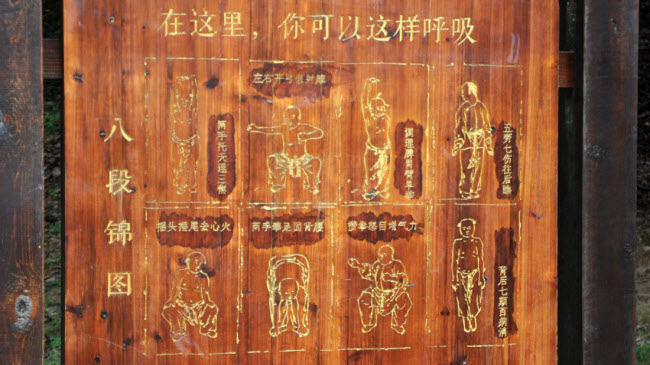 在这里，你可以这样呼吸
八段锦图
两手托天理三焦
左右开弓似射雕
调理脾胃臂单举
五劳七伤往后瞧
摇头摆尾去心火
两手攀足固肾腰
攒拳怒目增气力
背后七颠百病消